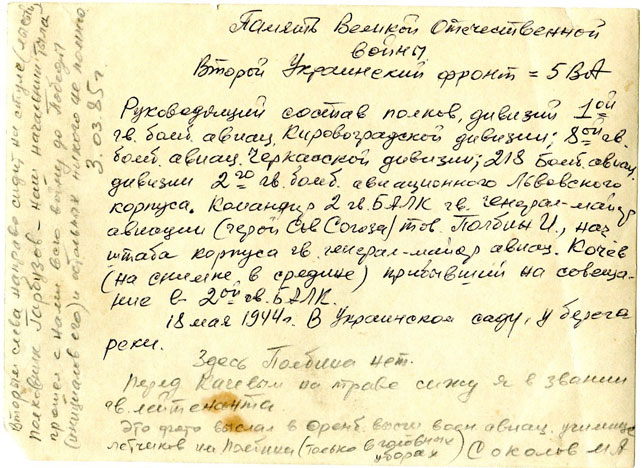 Память Великой Отечественной
войны
Второй Украинский фронт = 5 ВА
Руководящий состав полков, дивизий 1ой
гв. бомб. авиац. Кировоградской дивизии; 8ой гв.
бомб. авиац. Черкасской дивизии; 218 Бомб. авиац.
дивизии 2го гв. бомб. авиационного Львовского
корпуса. Командир 2 гв. БАК гв. генерал-майор
авиации (герой Сов Союза) тов. Полбин И., нач
штаба корпуса гв. генерал-майор авиац. Кочев
(на снимке в средине) прибывший на совеща-
ние в 2ой гв. БАК.
18 мая 1944 г. В Украинском саду, у берега
реки.
Здесь Полбина нет.
Перед Качевым на траве сижу я в звании
гв. лейтенанта.
Это фото выслал в Оренб. высш воен авиац. училище
летчиков им Полбина (только в головных
уборах) Соколов М А
Вторым слева направо сидит на стуле
полковник Гарбузов - наш начальник тыла
прошел с нами всю войну до Победы
(инициалов его) и остальных никого не помню
3.03.85 г